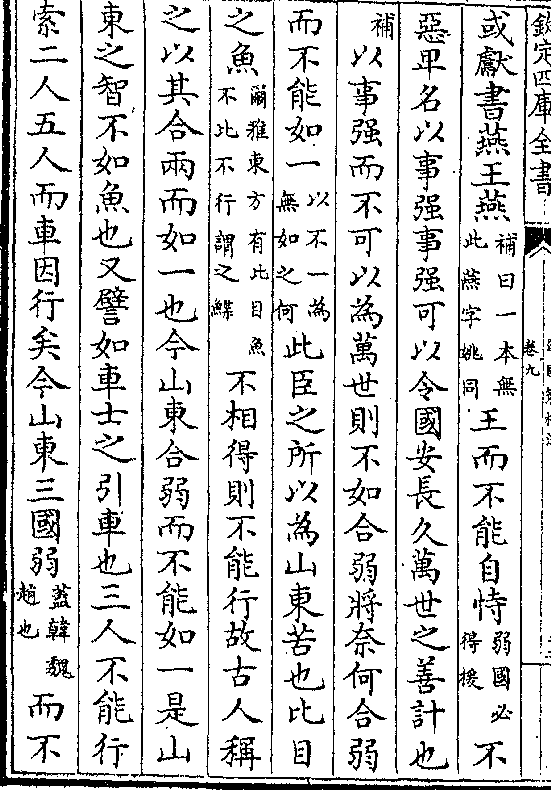 欽定四庫全書
卷九
或獻書燕王燕補曰一本無此燕字姚同王而不能自恃弱國必得援不
惡卑名以事强事强可以令國安長久萬世之善計也
補以事强而不可以為萬世則不如合弱將奈何合弱
而不能如一以不一為無如之何此臣之所以為山東苦也比目
之魚爾雅東方有比目魚不比不行謂之鰈不相得則不能行故古人稱
之以其合兩而如一也今山東合弱而不能如一是山
東之智不如魚也又譬如車士之引車也三人不能行
索二人五人而車因行矣今山東三國弱蓋韓魏趙也而不